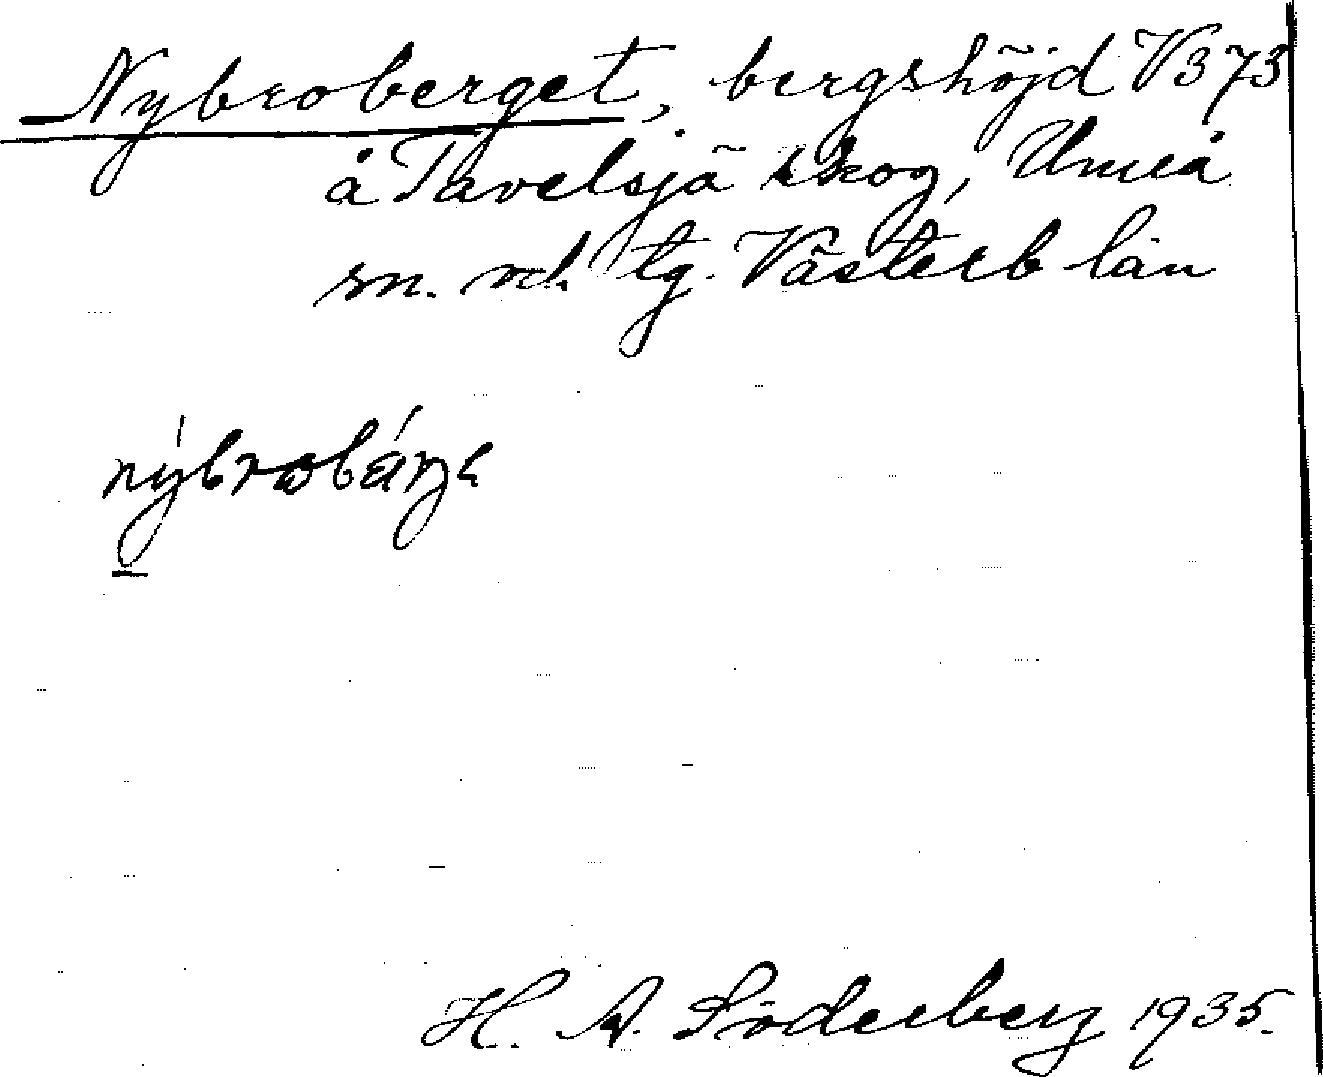 Nybroberget, bergshöjd V373
å Tavelsjö skog, Umeå
sn. och tg. Västerb län
nýbrobárjə
H. A. Söderberg 1935.